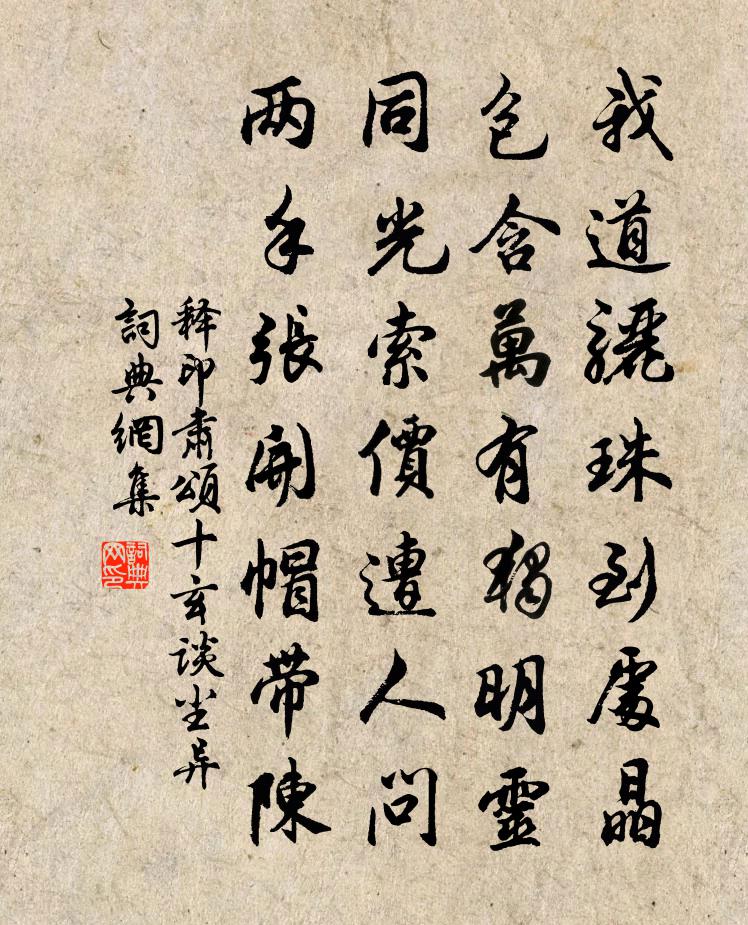 我道驪珠到處晶
包含萬有獨明靈
同光索價遭人問
两手張開帽带陳
释印肅頌十玄談尘异
詞典網集
詞典
网印